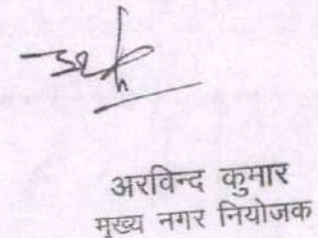 अरविन्द कुमार
मुख्य नगर नियोजक